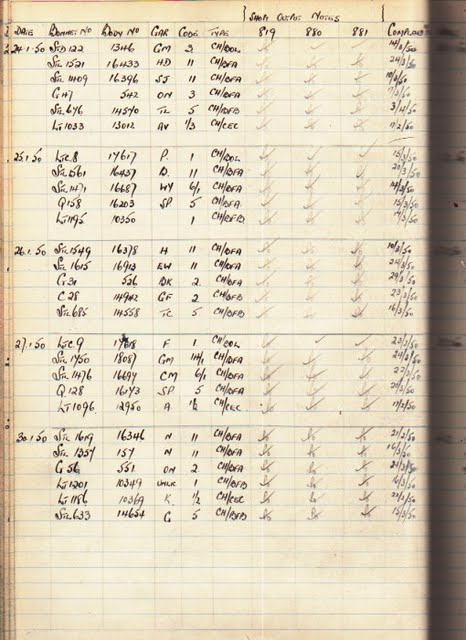 SHOPS OUTPUT NOTES
DATE BONNET NO BODY NO GAR CODE TYPE 819 880 881 COMPLETED
24.1.50 STD 122 1346 GM 2 CH/DOL 14/3/50
STL 1521 16433 HD 11 CH/OFA 24/3/50
STL 1409 16396 SJ 11 CH/OFA 10/3/50
G 47 542 ON 3 CH/OFA 7/3/50
STL 676 14570 TL 5 CH/OFB 3/4/50
LT 1033 13012 AV 1/3 CH/CEC 17/2/50
25.1.50 LTC 8 17617 P. 1 CH/DOL 15/3/50
STL 1561 16437 D. 11 CH/OFA 21/3/50
STL 1471 16687 WY 6/1 CH/OFA 14/3/50
Q 158 16203 SP 5 CH/OFA 15/3/50
LT 1195 10350 1 CH/OFB 14/3/50
26.1.50 STL 1549 16378 H 11 CH/OFA 10/3/50
STL 1615 16913 EW 11 CH/OFA 24/3/50
G 31 526 BK 2 CH/OFA 29/3/50
C 28 14942 GF 2 CH/OFB 23/3/50
STL 685 14558 TC 5 CH/OFB 16/3/50
27.1.50 LTC 9 17618 F 1 CH/DOL 23/3/50
STL 1750 18087 GM 11/1 CH/OFA 24/3/50
STL 1476 16694 CM 6/1 CH/OFA 22/3/50
Q 128 16173 SP 5 CH/OFA
LT 1096 12950 A 1/2 CH/CEC 17/2/50
30.1.50 STL 1619 16346 N 11 CH/OFA 21/3/50
STL 1357 157 N 11 CH/OFA 16/3/50
G 56 551 ON 2 CH/OFA 24/3/50
LT 1201 10349 1 CH/OFB 16/3/50
LT 1186 10369 K 1/2 CH/CEC 22/3/50
STL 633 14654 G 5 CH/OFB 15/3/50